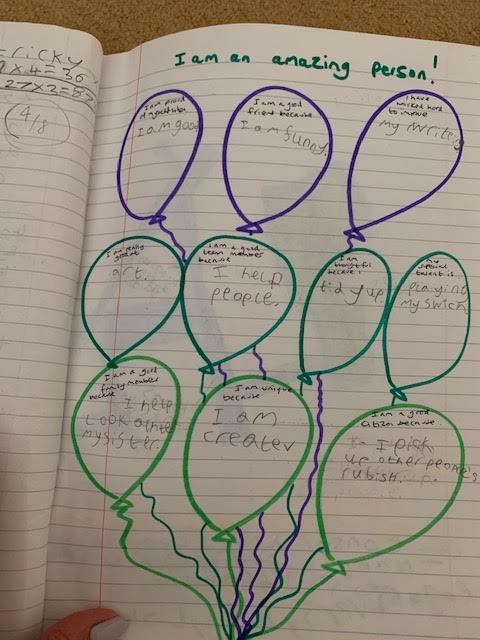 Tricky
9x4=36
27x3=8
4/8
I am an amazing person!
I am proud
of yourself
I am good
I am a good
friend because
I am funny.
I have
worked hard
to improve
my writeing
I am really
good at
art.
I am a good
team member
because
I help
people.
I am
thoughtful
because I
tidy up
My
special
talent is...
playing
my swich
I am a good
family member
because
I help
Look after
mysister.
I am unique
because
I am
creater
I am a good
citizen because
I pick
up other people's
rubish.